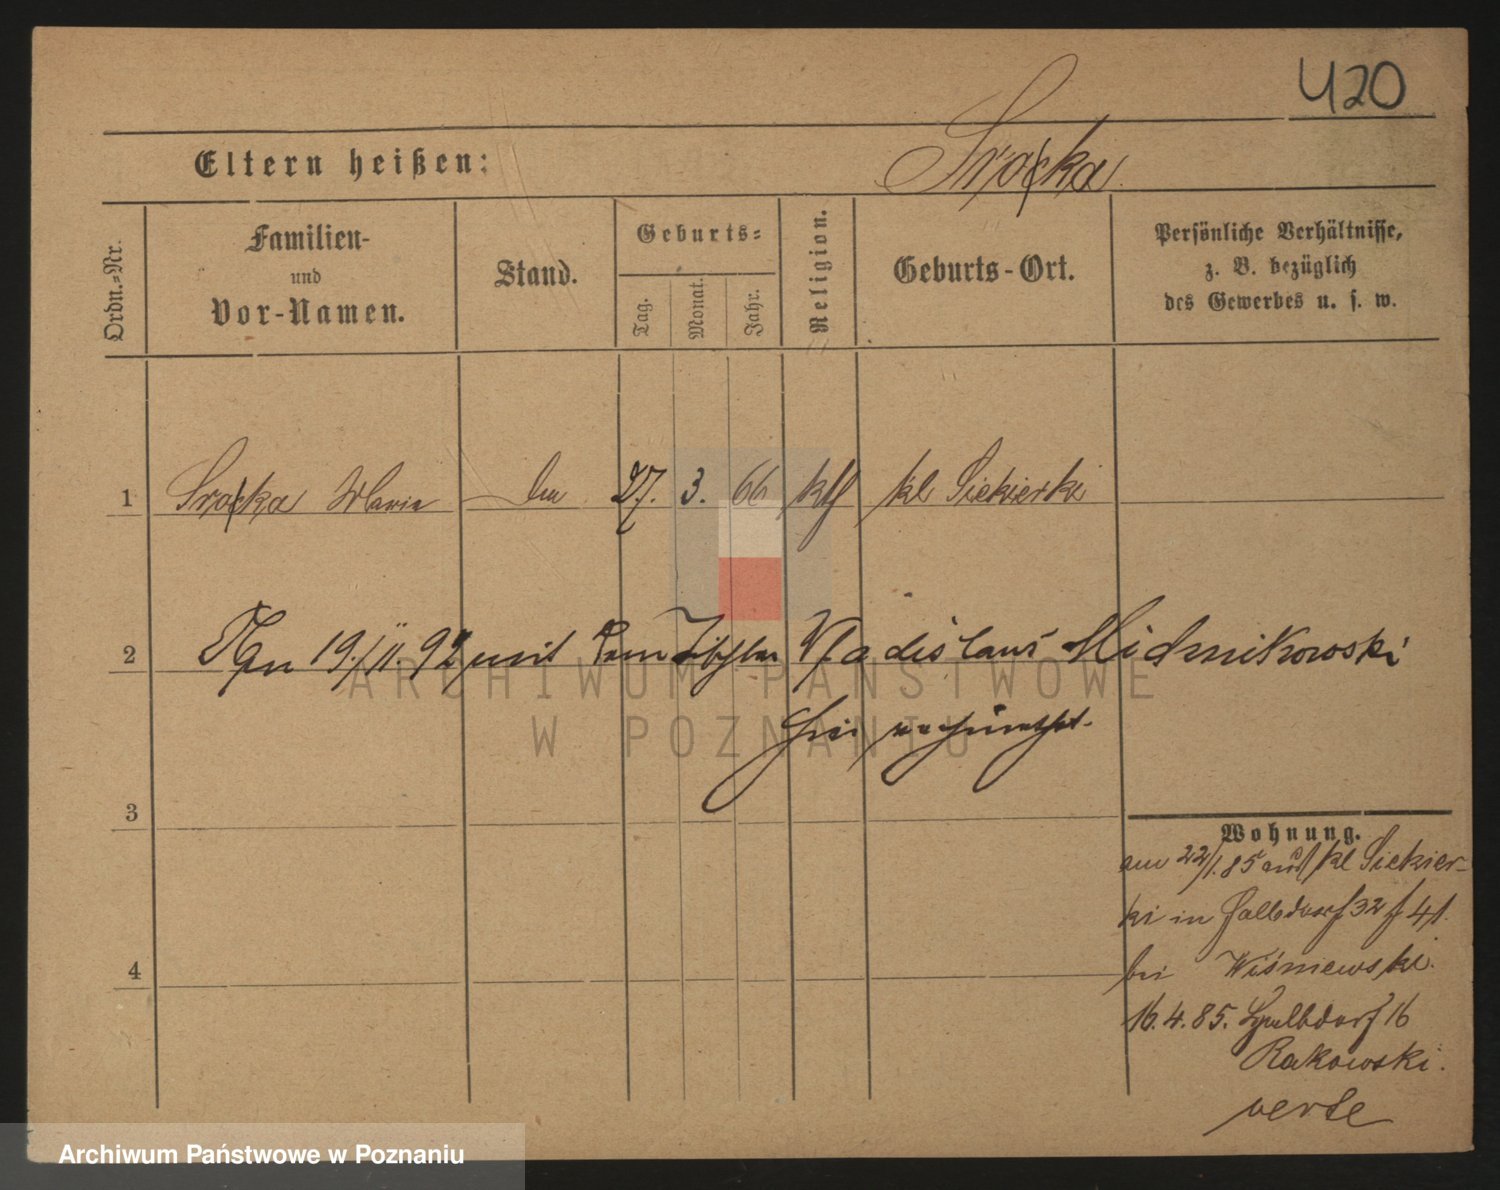 420
Eltern heißen:
Sroćka
Ordn.-Nr.
Familien-
und
Vor-Namen.
Stand.
Geburts-
Tag.
Monat.
Jahr.
Religion.
Geburts-Ort.
Persönliche Verhältnisse,
z. B. bezüglich
des Gewerbes u. s. w.
1 Maria 27. 3. 66 kth kl Siekierki
2 Am 19./11. 92 mit dem Tischler Vladislaus Midznikowski
hier verheirathet.
3
Wohnung.
am 22/1. 85 aus kl Siekier-
ki in Halbdorf 32
4
bei Wiśniewski.
16.4.85. Halbdorf 16
Rakowski.
verte
ARCHIWUM PAŃSTWOWE
W POZNANIU
Archiwum Państwowe w Poznaniu